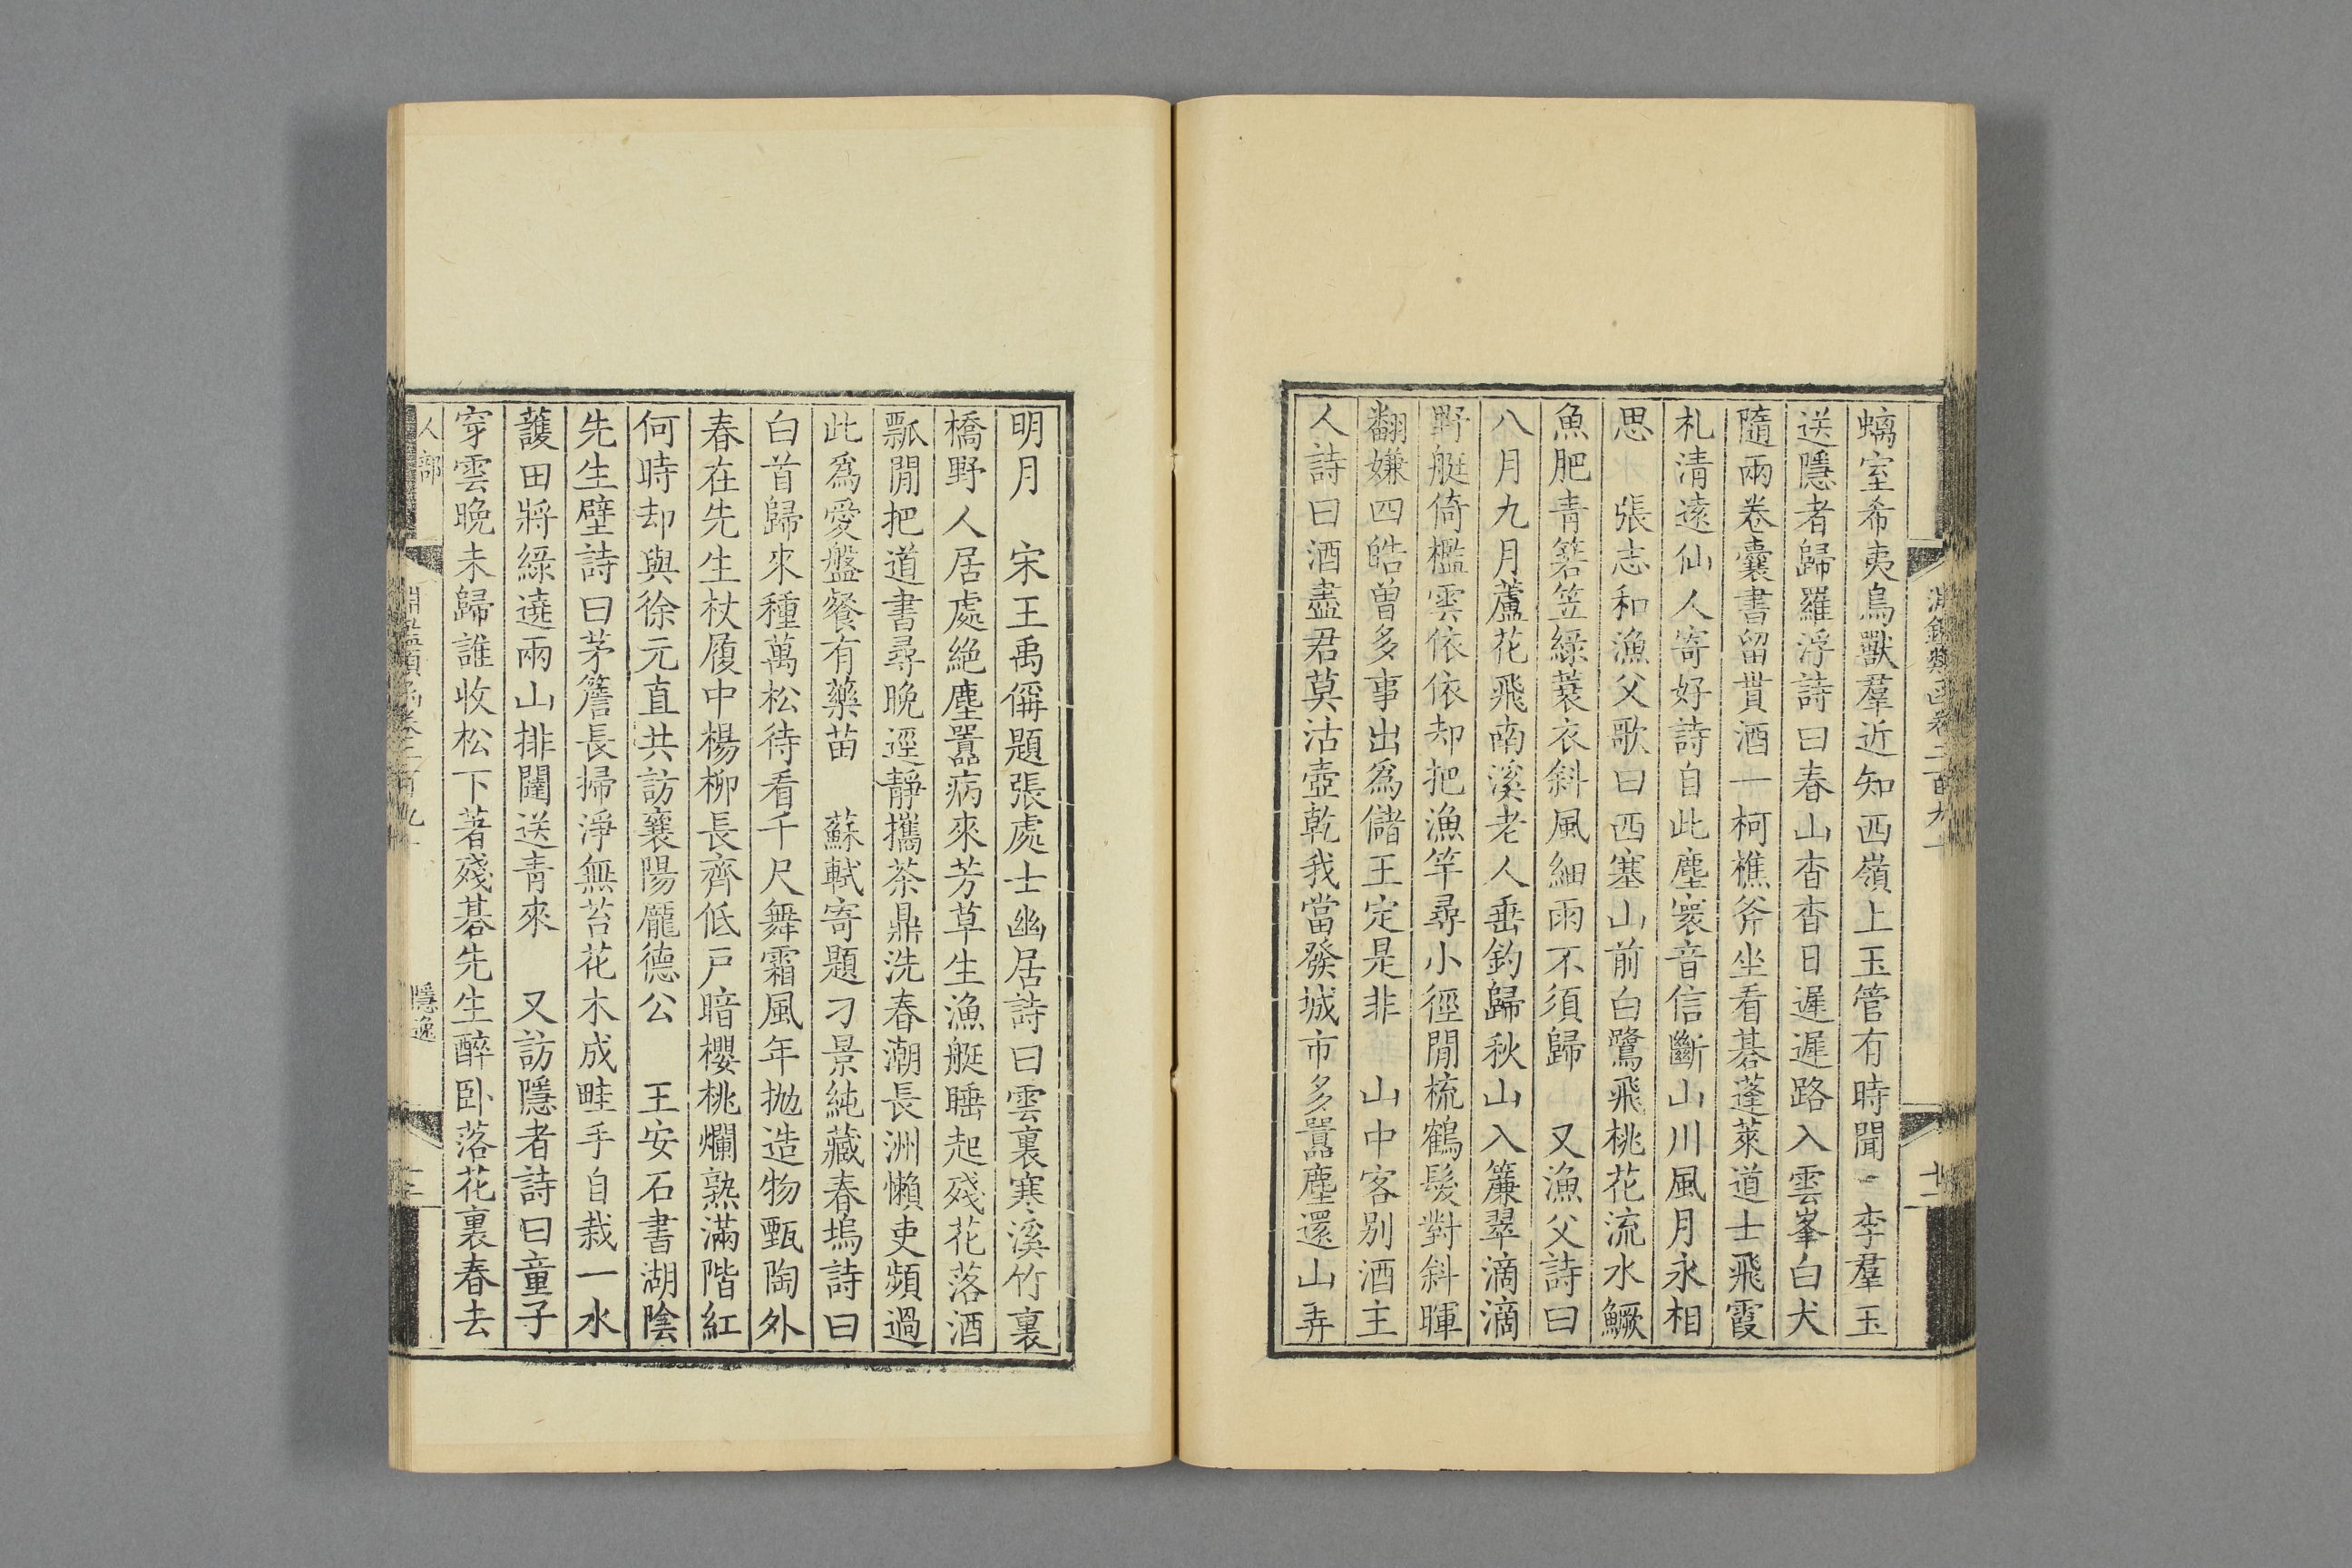 螭室希夷鳥獸羣近知西嶺上玉管有時聞　李羣玉
送隱者歸羅浮詩曰春山杳杳日遲遲路入雲峯白犬
隨兩卷囊書留貰酒一柯樵斧坐看碁蓬萊道士飛霞
札清遠仙人寄好詩自此塵寰音信斷山川風月永相
思　張志和漁父歌曰西塞山前白鷺飛桃花流水鱖
魚肥青箬笠綠蓑衣斜風細雨不須歸　又漁父詩曰
八月九月蘆花飛南溪老人垂釣歸秋山入簾翠滴滴
野艇倚檻雲依依却把漁竿尋小徑閒梳鶴髮對斜暉
翻嫌四皓曾多事出爲儲王定是非　山中客別酒主
人詩曰酒盡君莫沽壺乾我當發城市多囂塵還山弄
明月　宋王禹偁題張處士幽居詩曰雲裏寒溪竹裏
橋野人居處絶塵囂病來芳草生漁艇睡起殘花落酒
瓢閒把道書尋晚逕靜攜茶鼎洗春潮長洲懶吏頻過
此爲愛盤餐有藥苗　蘇軾寄題刁景純藏春塢詩曰
白首歸來種萬松待看千尺舞霜風年抛造物甄陶外
春在先生杖履中楊柳長齊低戸暗櫻桃爛熟滿階紅
何時却與徐元直共訪襄陽龎德公　王安石書湖陰
先生壁詩曰茅簷長掃淨無苔花木成畦手自栽一水
護田將綠遶兩山排闥送青來　又訪隱者詩曰童子
穿雲晚未歸誰收松下著殘碁先生醉卧落花裏春去
人部
隱逸